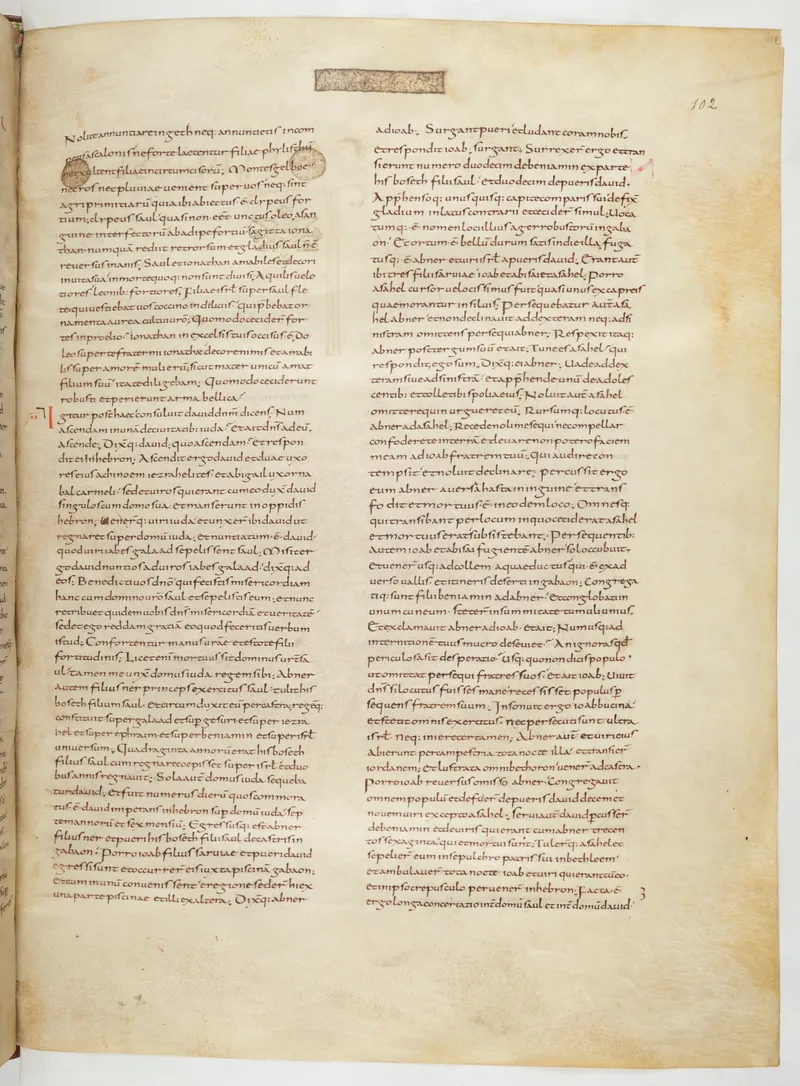 102
Nolite annuntiare in geth neq: annuntietis in com
pitis ascalonis ne forte laetentur filiae philisthiim
ne exultent filiae incircumcisorū; Montes gelboe
nec ros nec pluuiae uenient super uos neq: sint
agri primitiarū quia ibi abiectus ē clypeus for
tium; clypeus saul quasi non eēt unctus oleo, a san
guine interfectorū ab adipe fortiū sagitta iona
than numquā rediit retrorsum et gladius saul nō ē
reuersus inanis; Saul et ionathan amabiles et decori
in uita sua in morte quoq: non sunt diuisi; Aquilis uelo
tiores leonib: fortiores; Filiae isrł super saul fle
te qui uestiebat uos coccino in diliciis qui p̄bebat or
namenta aurea cultui urō; Quomodo cecider for
tes in proelio; ionathan in excelsis tuis occisus ē; Do
leo super te frater mi ionatha decore nimis et amabi
lis super amorē mulierū; sicut mater unicū amat
filium suū ita te diligebam; Quomodo ceciderunt
robusti et perierunt arma bellica;
Igitur post haec consuluit dauid dn̄m dicens; Num
ascendam in unā de ciuitatib: iuda et ait dn̄s ad eū,
ascende; Dixq: dauid; quo ascendam et respon
dit ei in hebron; Ascendit ergo dauid et duae uxo
res eius achinoem iezrahelites et abigail uxor na
bal carmeli sed et uiros qui erant cum eo dux dauid
singulos cum domo sua et manserunt in oppidis
hebron; uenerq: uiri iuda et unxer ibi dauid ut
regnaret super domū iuda, et nuntiatum ē dauid
quod uiri iabes galaad sepelissent saul; Misit er
go dauid nuntios ad uiros iabes galaad dixq: ad
eos; Benedicti uos dn̄o qui fecistis misericordiam
hanc cum domino uro saul et sepelistis eum; et nunc
retribuet quidem uobis dn̄s misericordiā et ueritatē
sed et ego reddam gratiā eo quod feceritis uerbum
istud; Confortentur manus urae et estote filii
fortitudinis; Licet enī mortuus sit dominus ur sa
ul tamen me unx domus iuda regem sibi; Abner
autem filius ner princeps exercitus saul tulit his
boseth filium saul et circumduxit eū per castra, regēq:
constituit super galaad et sup gesuri et super iezra
hel et super ephraim et super beniamin et super isrł
uniuersum; Quadraginta annorū erat hisboseth
filius saul cum regnare coepisset super isrł et duo
bus annis regnauit; Sola autē domus iuda sequeba
tur dauid; et fuit numerus dierū quos commora
tus ē dauid imperans in hebron sup domū iuda sep
tem annorū et sex mensiū; Egressusq: est abner
filius ner et pueri hisboseth filii saul de castris in
gabaon; Porro ioab filius saruiae et pueri dauid
egressi sunt et occurrer eis iuxta piscinā gabaon;
et cum in unū conuenissent e regione seder hi ex
una parte piscinae et illi ex altera; Dixq: abner
ad ioab; Surgant pueri et ludant coram nobis
et respondit ioab, surgant; Surrexer ergo et tran
sierunt numero duodecim de beniamin ex parte
hisboseth filii saul et duodecim de pueris dauid.
Apphensoq: unusquisq: capite comparis sui defix
gladium in latus contrarii et cecider simul; Uoca
tumq: ē nomen loci illius ager robustorū in gaba
on; Et ortum ē bellū durum satis in die illa, fuga
tusq: ē abner et uiri isrł a pueris dauid; Erant autē
ibi tres filii saruiae ioab et abisai et asahel, Porro
asahel cursor uelocissimus fuit quasi unus ex capreis
quae morantur in siluis; Persequebatur autē asa
hel abner et non declinauit ad dexteram neq: ad si
nistram omittens persequi abner; Respexit itaq:
abner post tergum suū et ait; Tu ne es asahel qui
respondit; ego sum; Dixq: ei abner; Uade ad dex
teram siue ad sinistrā et apphende unū de adoles
centib: et tolle tibi spolia eius; Noluit autē asahel
omittere quin urgueret eū; Rursumq: locutus ē
abner ad asahel; Recede noli me sequi ne compellar
confodere te in terrā et leuare non potero faciem
meam ad ioab fratrem tuū; Qui audire con
tempsit et noluit declinare, percussit ergo
eum abner auersa hasta in inguine et trans
fodit et mortuus ē in eodem loco; Omnesq:
qui transibant per locum in quo ceciderat asahel
et mortuus erat subsistebant; Persequentib:
autem ioab et abisai fugientē abner sol occubuit,
et uenerusq: ad collem aquae ductus qui ē ex ad
uerso uallis et itineris deserti in gabaon; Congrega
tiq: sunt filii beniamin ad abner et conglobati in
unum cuneum steter in summitate tumuli unius;
Et exclamauit abner ad ioab et ait; Num usq: ad
internitionē tuus mucro deseuiet An ignoras qd
periculosa sit desperatio Usq: quo non dicis populo
ut omittat persequi fratres suos; Et ait ioab; Uiuit
dn̄s si locutus fuisses mane recessisset populus p
sequens fratrem suum; Insonuit ergo ioab bucina
et stetit omnis exercitus nec persecuti sunt ultra
isrł neq: iniere certamen; Abner autē et uiri eius
abierunt per campestria tota nocte illa et transier
iordanem; et lustrata omni bethoron uener ad castra.
Porro ioab reuersus omisso abner congregauit
omnem populū et defuer de pueris dauid decem et
nouem uiri excepto asahel; serui autē dauid pcusser
de beniamin et de uiris qui erant cum abner trecen
tos sexaginta, qui et mortui sunt; Tulerq: asahel et
sepelier eum in sepulchro patris sui in bethleem
et ambulauer tota nocte ioab et uiri qui erant cū eo.
et in ipso crepusculo peruener in hebron; Facta ē
ergo longa concertatio int domū saul et int domū dauid